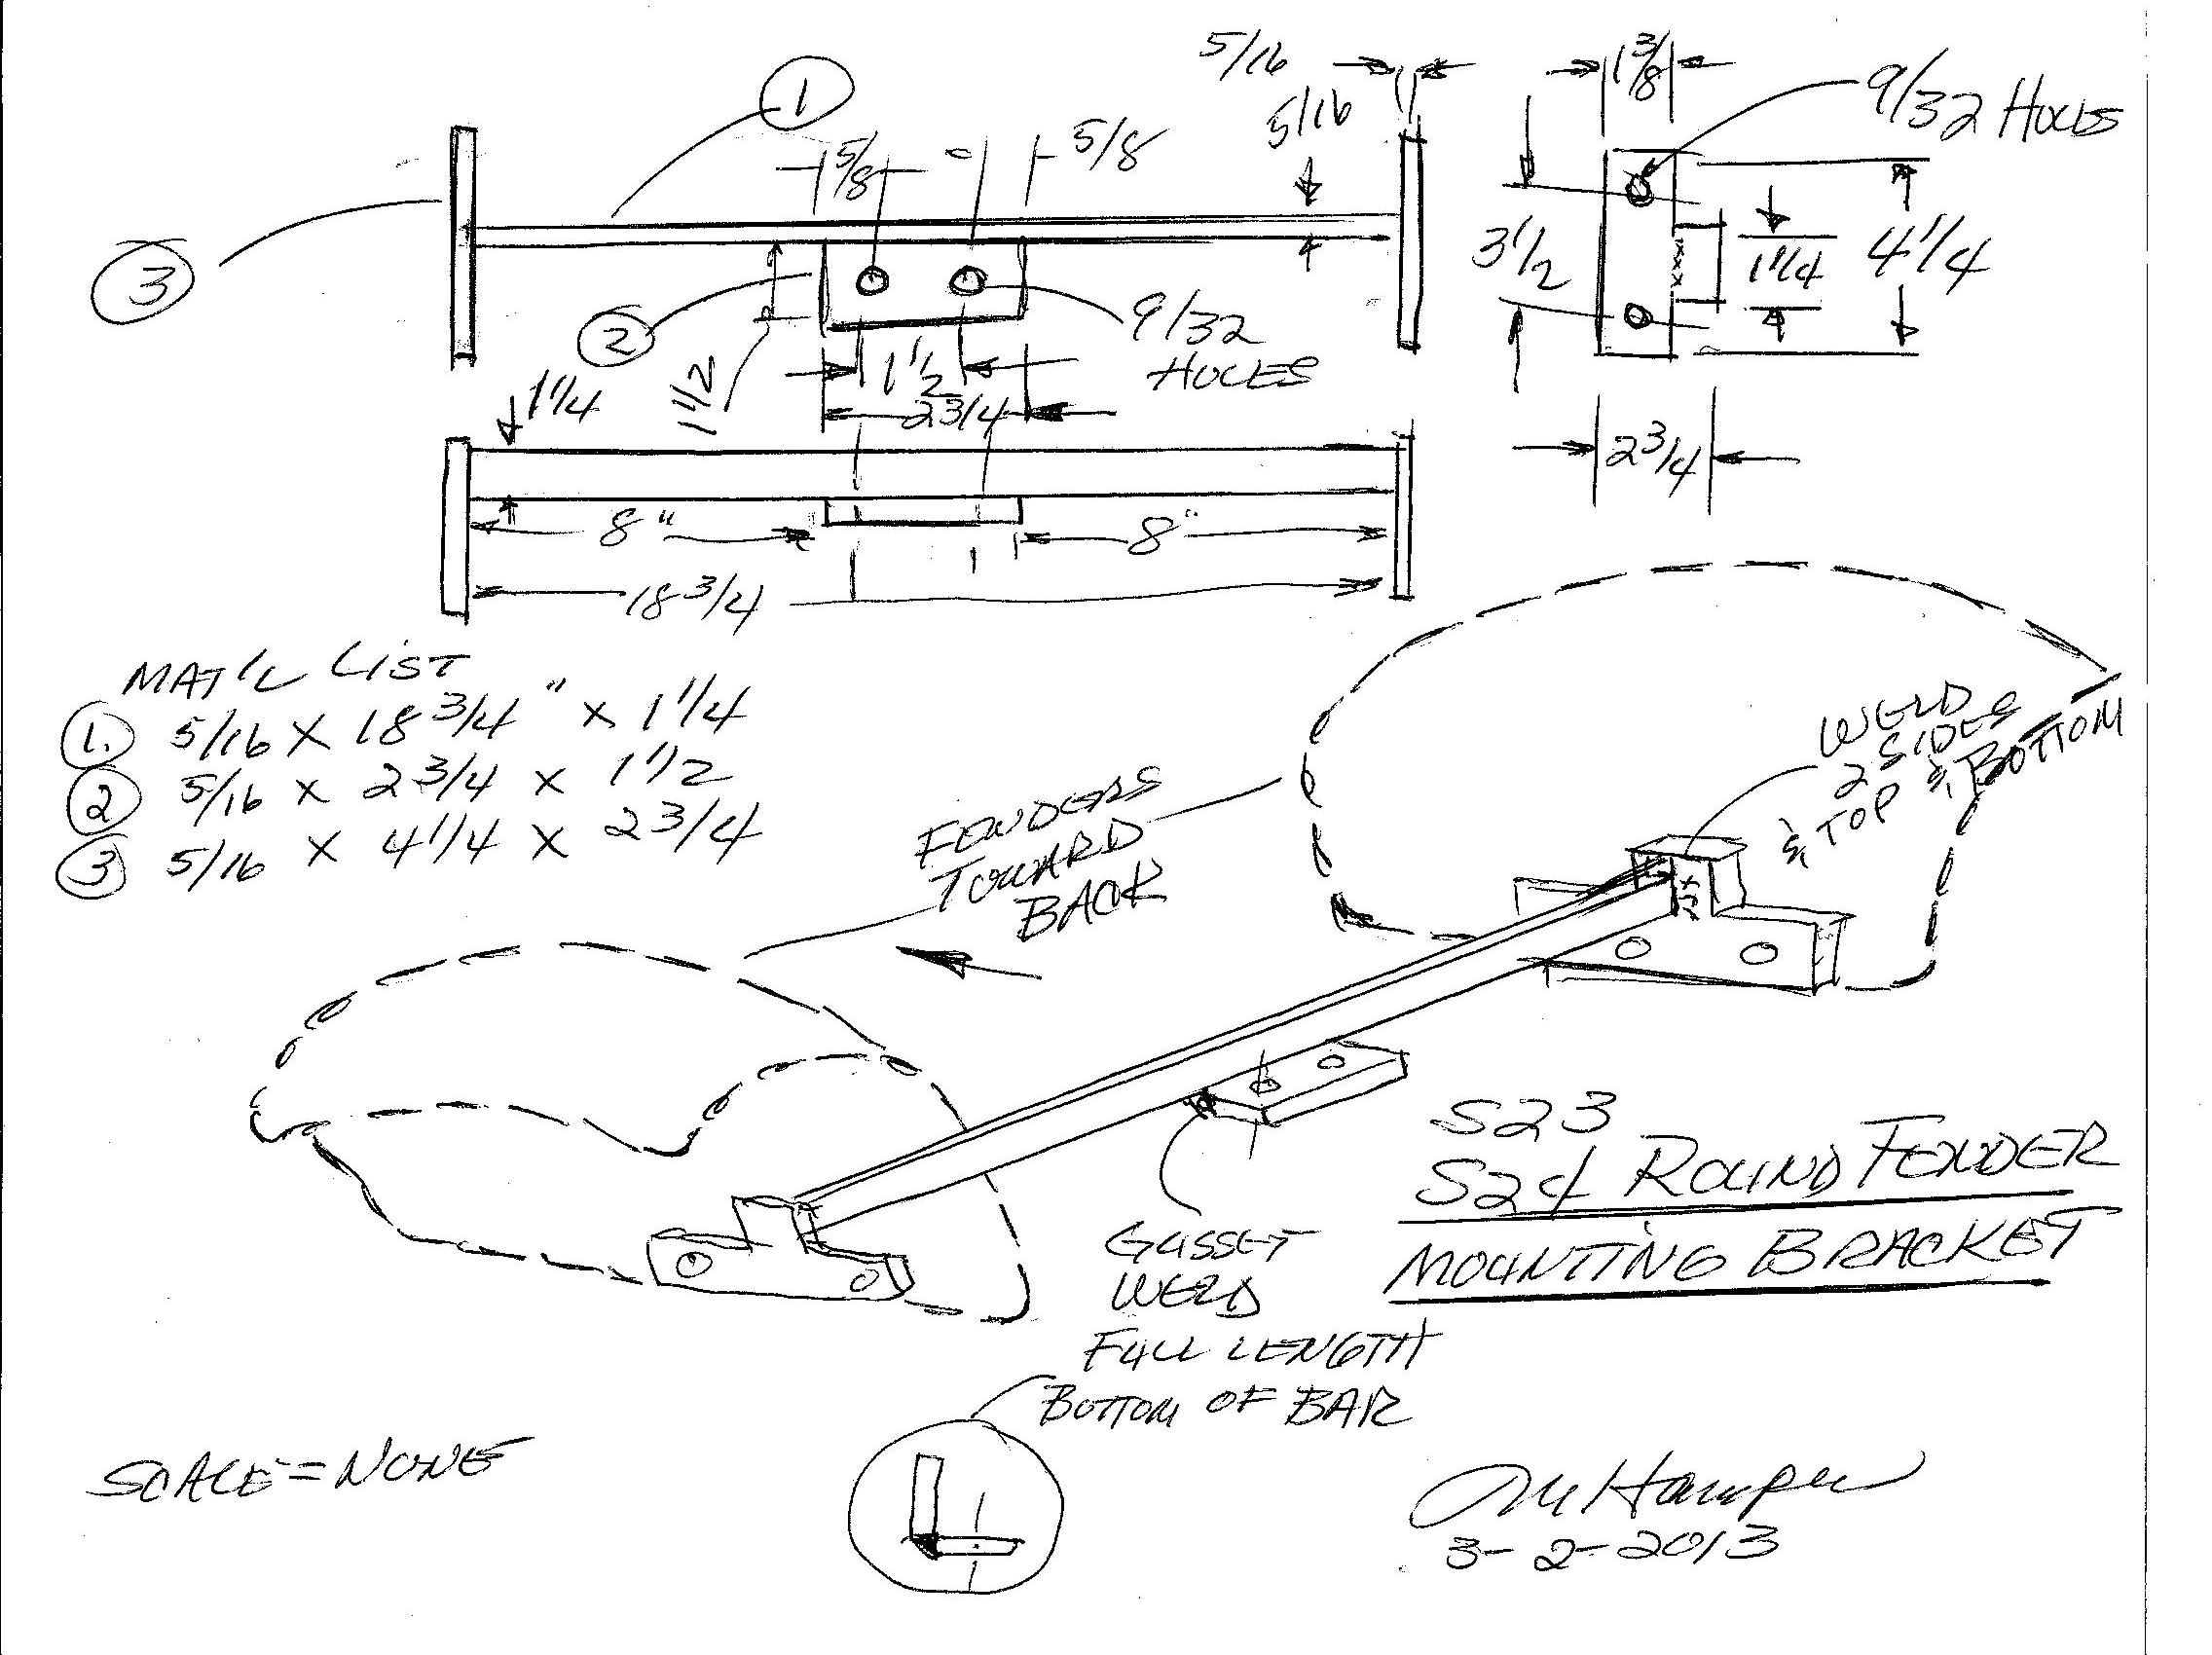 1
5/16
1 3/8
9/32 HOLES
5/8
5/8
5/16
3
2
9/32
HOLES
3 1/2
1 1/4
4 1/4
1 1/4
1 1/2
1 1/2
2 3/4
2 3/4
8"
8"
18 3/4
MAT'L LIST
1. 5/16 X 18 3/4" X 1 1/4
2 5/16 X 2 3/4 X 1 1/2
3 5/16 X 4 1/4 X 2 3/4
FENDERS
TOWARD
BACK
WELD
2 SIDES
& TOP & BOTTOM
S23
S24 ROUND FENDER
MOUNTING BRACKET
GUSSET
WELD
FULL LENGTH
BOTTOM OF BAR
SCALE = NONE
3-2-2013